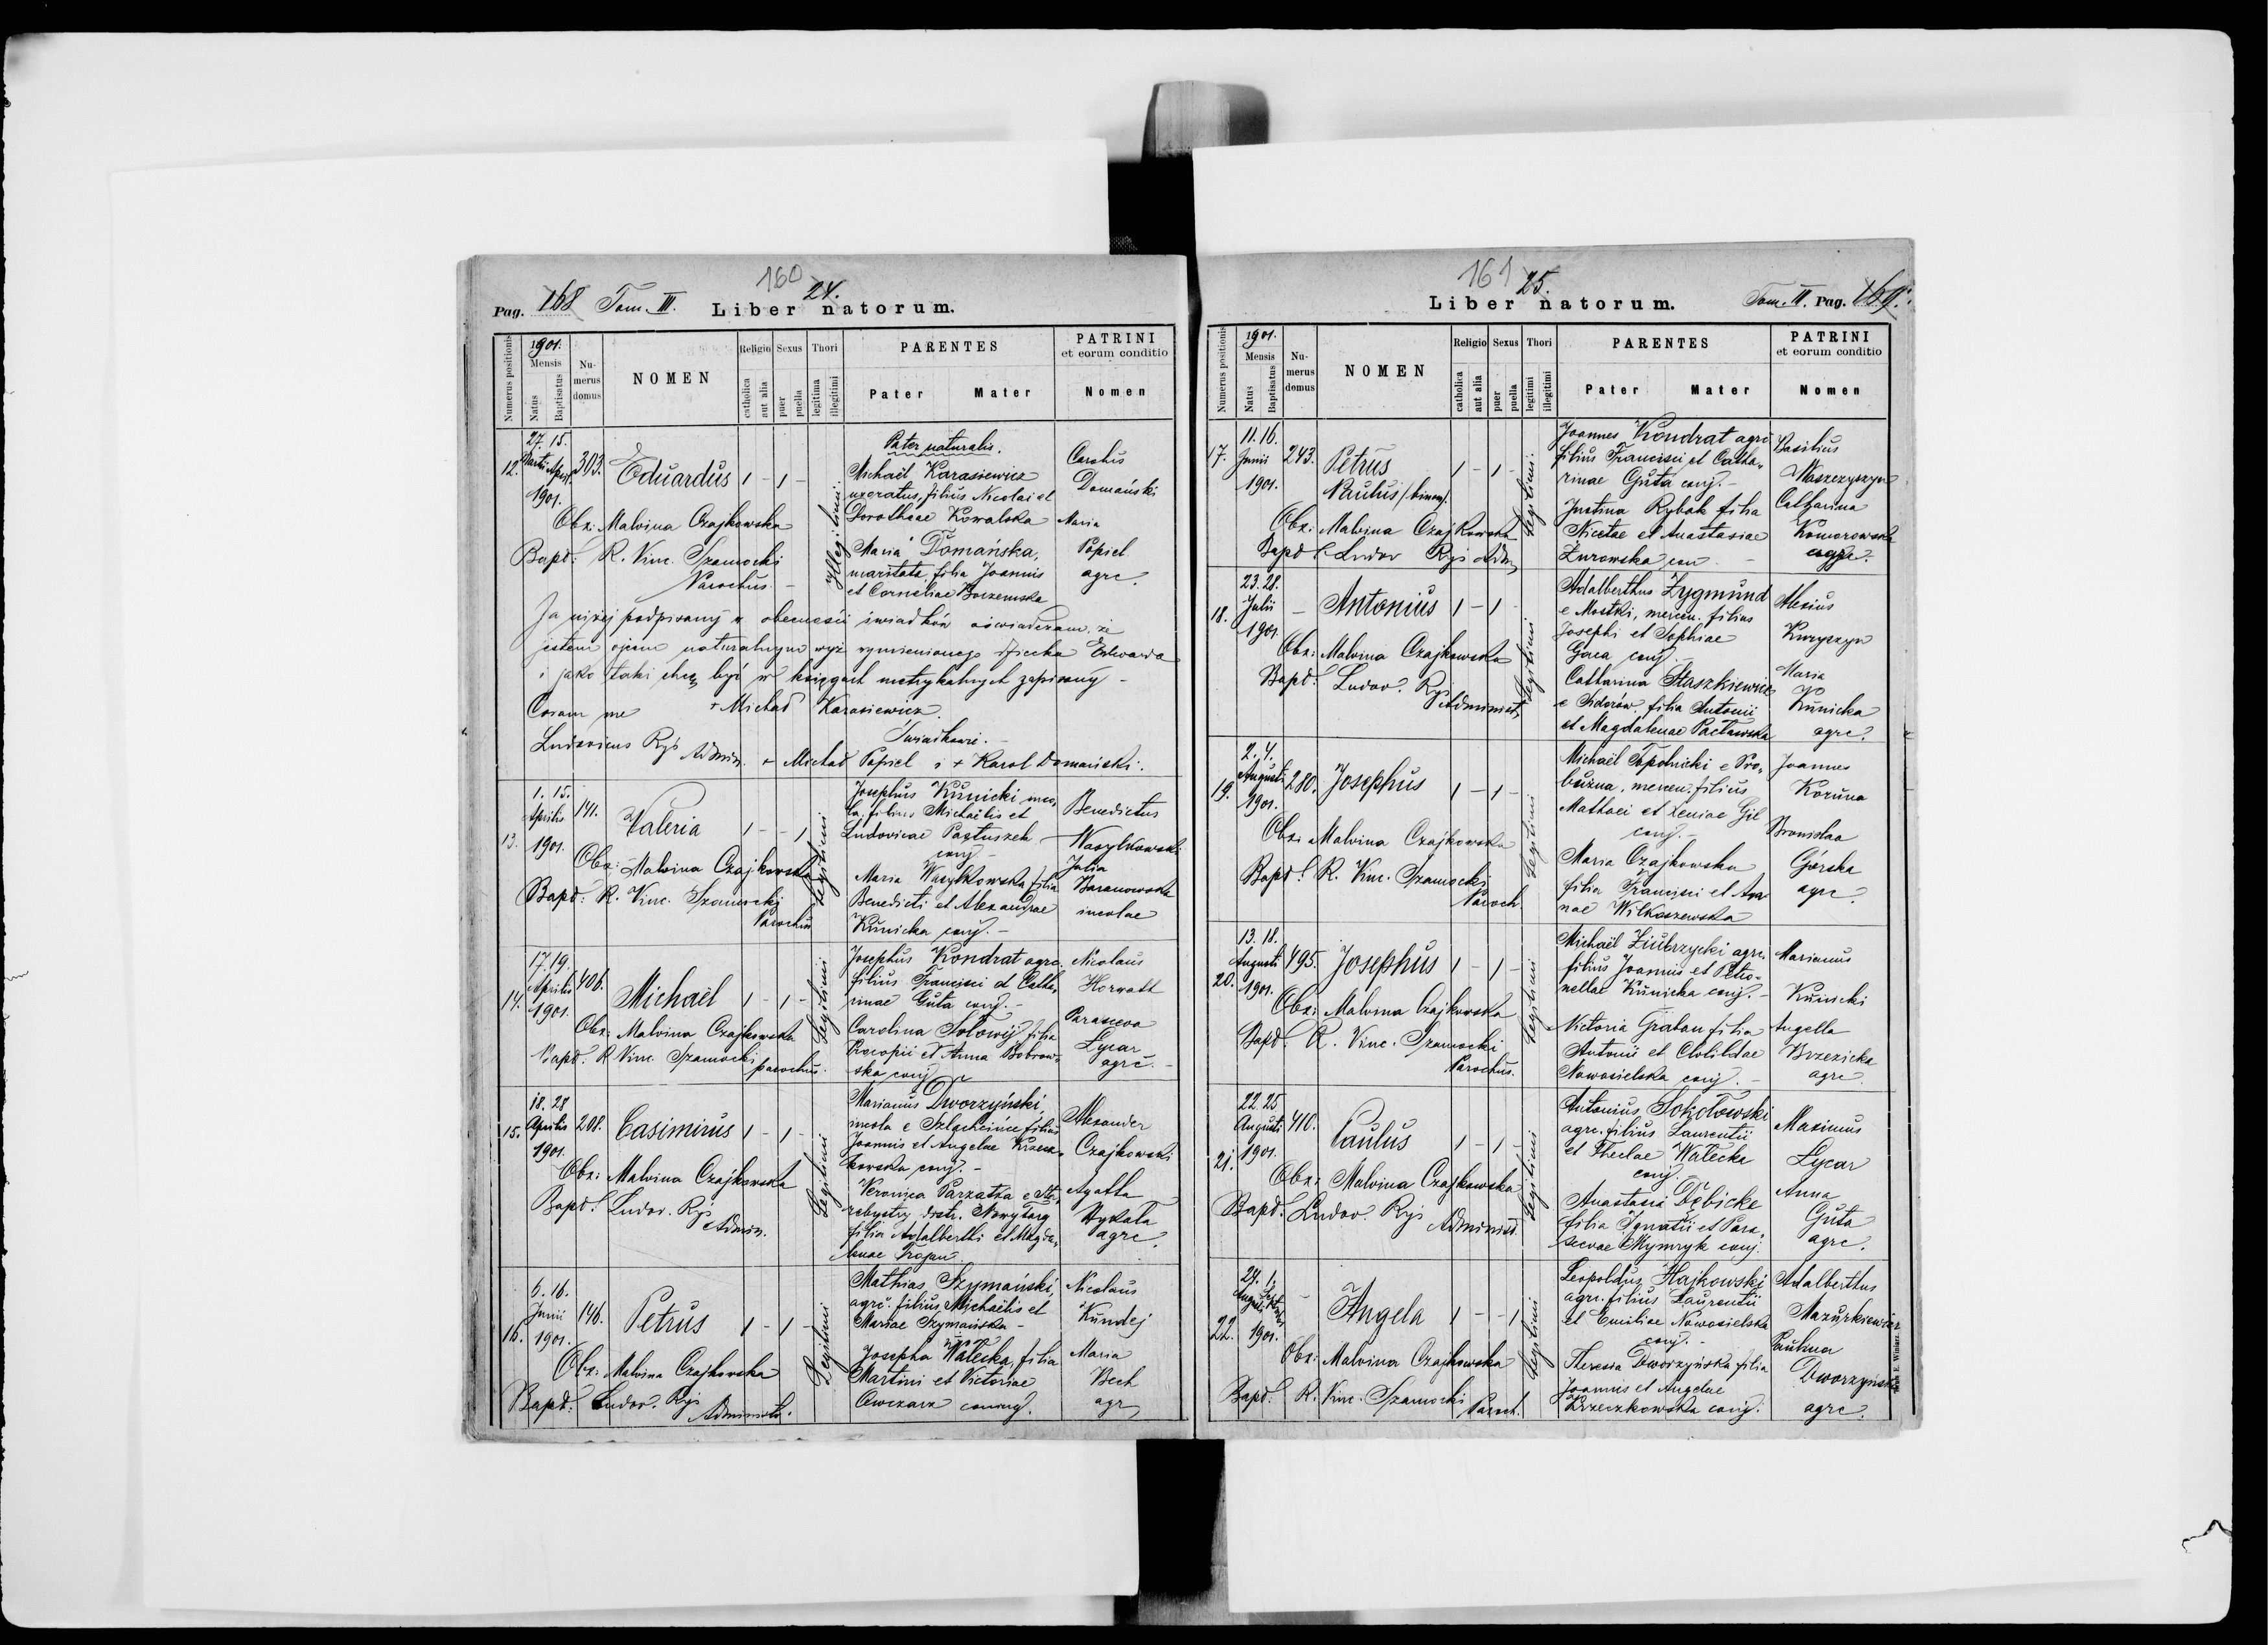 160
Pag. 168 Tom. III. 24.
Liber natorum.
Numerus positionis
1901.
Mensis
Natus
Baptisatus
Nu-
merus
domus
NOMEN
Religio
catholica
aut alia
Sexus
puer
puella
Thori
legitima
illegitimi
PARENTES
Pater Mater
PATRINI
et eorum conditio
Nomen
12.
27. 15.
Martii April
1901.
303.
Eduardus 1 - 1 -
Obx: Malvina Czajkowska
Bapt: R. Vinc. Szamocki
Parochus. -
Illegitimi
Pater naturalis.
Michaël Karasiewicz
uxoratus, filius Nicolai et
Dorotheae Kowalska
Maria Domańska,
maritata, filia Joannis
et Corneliae
Carolus
Domański
Maria
Popiel
agrc.
Ja niżej podpisany w obecności świadków oświadczam, że
jestem ojcem naturalnym wyż wymienionego dziecka Edwarda
i jako taki chcę być w księgach metrykalnych zapisany -
Coram me + Michał Karasiewicz.
Świadkowie. -
Ludovicus Ryś Admin. + Michał Popiel i + Karol Domański.
13.
1. 15.
Aprilis
1901.
141.
Valeria 1 - - 1
Obx: Malvina Czajkowska
Bapt: R. Vinc. Szamocki
Parochus
Legitimi
Josephus Kunicki inco,
la, filius Michaëlis et
Ludovicae Pastuszek
conj. -
Maria Wasylkowska filia
Benedicti et Alexandrae
Kunicka conj. -
Benedictus
Wasylkowski
Julia
Baranowska
incolae
14.
17. 19.
Aprilis
1901.
406.
Michaël 1 - 1 -
Obx: Malvina Czajkowska
Bapt. R. Vinc. Szamocki
parochus.
Legitimi
Josephus Kondrat agrc.
filius Francisci et Catha,
rinae Guta conj. -
Carolina Sołowij filia
Procopii et Anna Bobrow,
ska conj
Nicolaus
Horwath
Parasceva
Lycar
agrc. -
15.
18. 28
Aprilis
1901.
208.
Casimirus 1 - 1 -
Obx: Malvina Czajkowska
Bapt. Ludov. Ryś
Admin.
Legitimi
Marianus Dworzyński,
incola e Szlachcińce filius
Joannis et Angelae Krzecz,
kowska conj. -
Veronica Parzatka e
distr. Nowytarg
filia Adalberthi et Magda,
lenae Trojan
Alexander
Czajkowski
Agatha
Hykała
agrc.
16.
6. 16.
Junii
1901.
146.
Petrus 1 - 1 -
Obx: Malvina Czajkowska
Bapt. Ludov. Ryś
Administr.
Legitimi
Mathias Szymański,
agrc. filius Michaëlis et
Mariae Szymańska -
Josepha Walecka, filia
Martini et Victoriae
Owczarz conjug.
Nicolaus
Kundej
Maria
Bech
agr,
161
25.
Liber natorum.
Tom. III. Pag. 169.
Numerus positionis
1901.
Mensis
Natus
Baptisatus
Nu-
merus
domus
NOMEN
Religio
catholica
aut alia
Sexus
puer
puella
Thori
legitimi
illegitimi
PARENTES
Pater Mater
PATRINI
et eorum conditio
Nomen
17.
11. 16.
Junii
1901.
243.
Petrus 1 - 1 -
Paulus /binom/.
Obx: Malvina Czajkowska
Bapt. Ludov Ryś Adm,
Legitimi.
Joannes Kondrat agrc
filius Francisci et Catha,
rinae Guta conj. -
Justina Rybak filia
Nicetae et Anastasiae
Żurowska con -
Basilius
Waszczyszyn
Catharina
Komorowska
agrc.
18.
23. 28.
Julii
1901.
-
Antonius 1 - 1 -
Obx: Malvina Czajkowska
Bapt. Ludov. Ryś
Administ,
Legitimi
Adalberthus Zygmund
e Mostki, mercen. filius
Josephi et Sophiae
conj -
Catharina Staszkiewicz
e Sidorów, filia Antonii
et Magdalenae Pacławska
Alexius
Maria
Kunicka
agrc.
19.
2. 4.
Augusti
1901.
280.
Josephus 1 - 1 -
Obx: Malvina Czajkowska
Bapt. R. Vinc. Szamocki
Paroch.
Legitimi
Michaël Topolnicki e Pro,
bużna, mercen. filius
Mathaei et Xeniae Gil
conj. -
Maria Czajkowska
filia Francisci et An
nae Wilkoszewska
Joannes
Koruna
Bronislaa
Górska
agrc.
20.
13. 18.
Augusti
1901.
495.
Josephus 1 - 1 -
Obx: Malvina Czajkowska
Bapt. R. Vinc. Szamocki
Parochus.
Legitimi
Michaël Ziubrzycki agrc.
filius Joannis et Petro,
nellae Kunicka conj. -
Victoria Graban filia
Antonii et Clotildae
Nowosielska conj. -
Marianus
Kunicki
Angella
Brzezicka
agrc.
21.
22. 25
Augusti
1901.
410.
Paulus 1 - 1 -
Obx: Malvina Czajkowska
Bapt. Ludov. Ryś
Administ.
Legitimi
Antonius Sokołowski
agrc. filius Laurentii
et Theclae Walecka
conj.
Anastasia Dębicke
filia Ignatii et Para,
scevae Mymryk conj.
Maximus
Lycar
Anna
Guta
agrc.
22.
24. 1.
Augusti
1901.
-
Angela 1 - - 1
Obx: Malvina Czajkowska
Bapt. R. Vinc. Szamocki
Paroch.
Legitimi
Leopoldus Hajkowski
agrc. filius Laurentii
et Emiliae Nowosielska
conj. -
Theresia Dworzyńska filia
Joannis et Angelae
Krzeczkowska conj.
Adalberthus
Mazurkiewicz
Paulina
Dworzyńska
agrc.